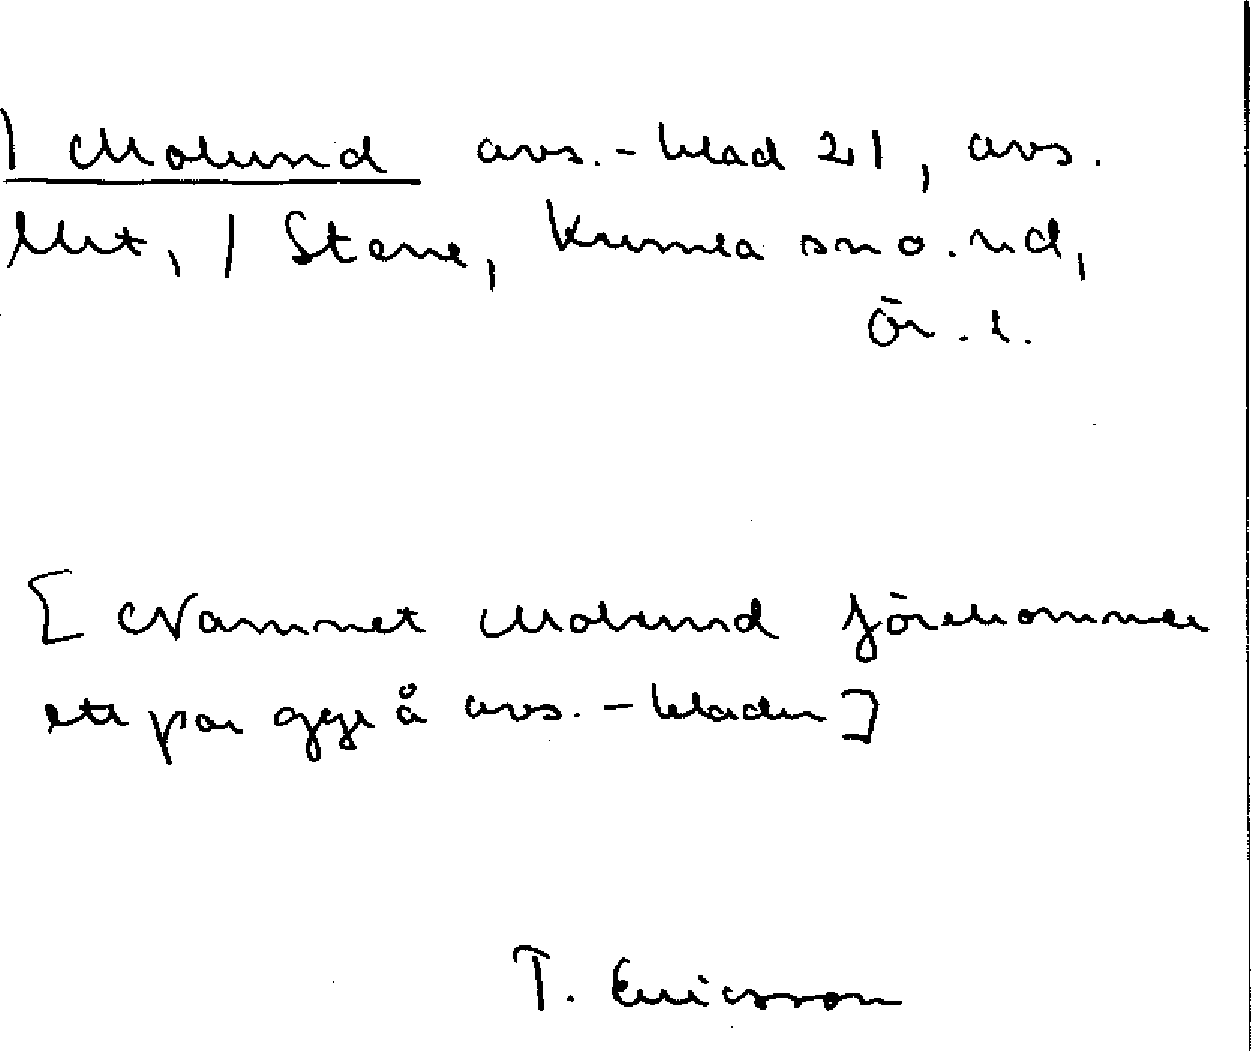 | Molund avs.-blad 21, avs.
litt, | Stene, Kumla sn o. hd,
Ör. l.
[ Namnet Molund förekommer
ett par ggr å avs.-bladen ]
T. Ericsson